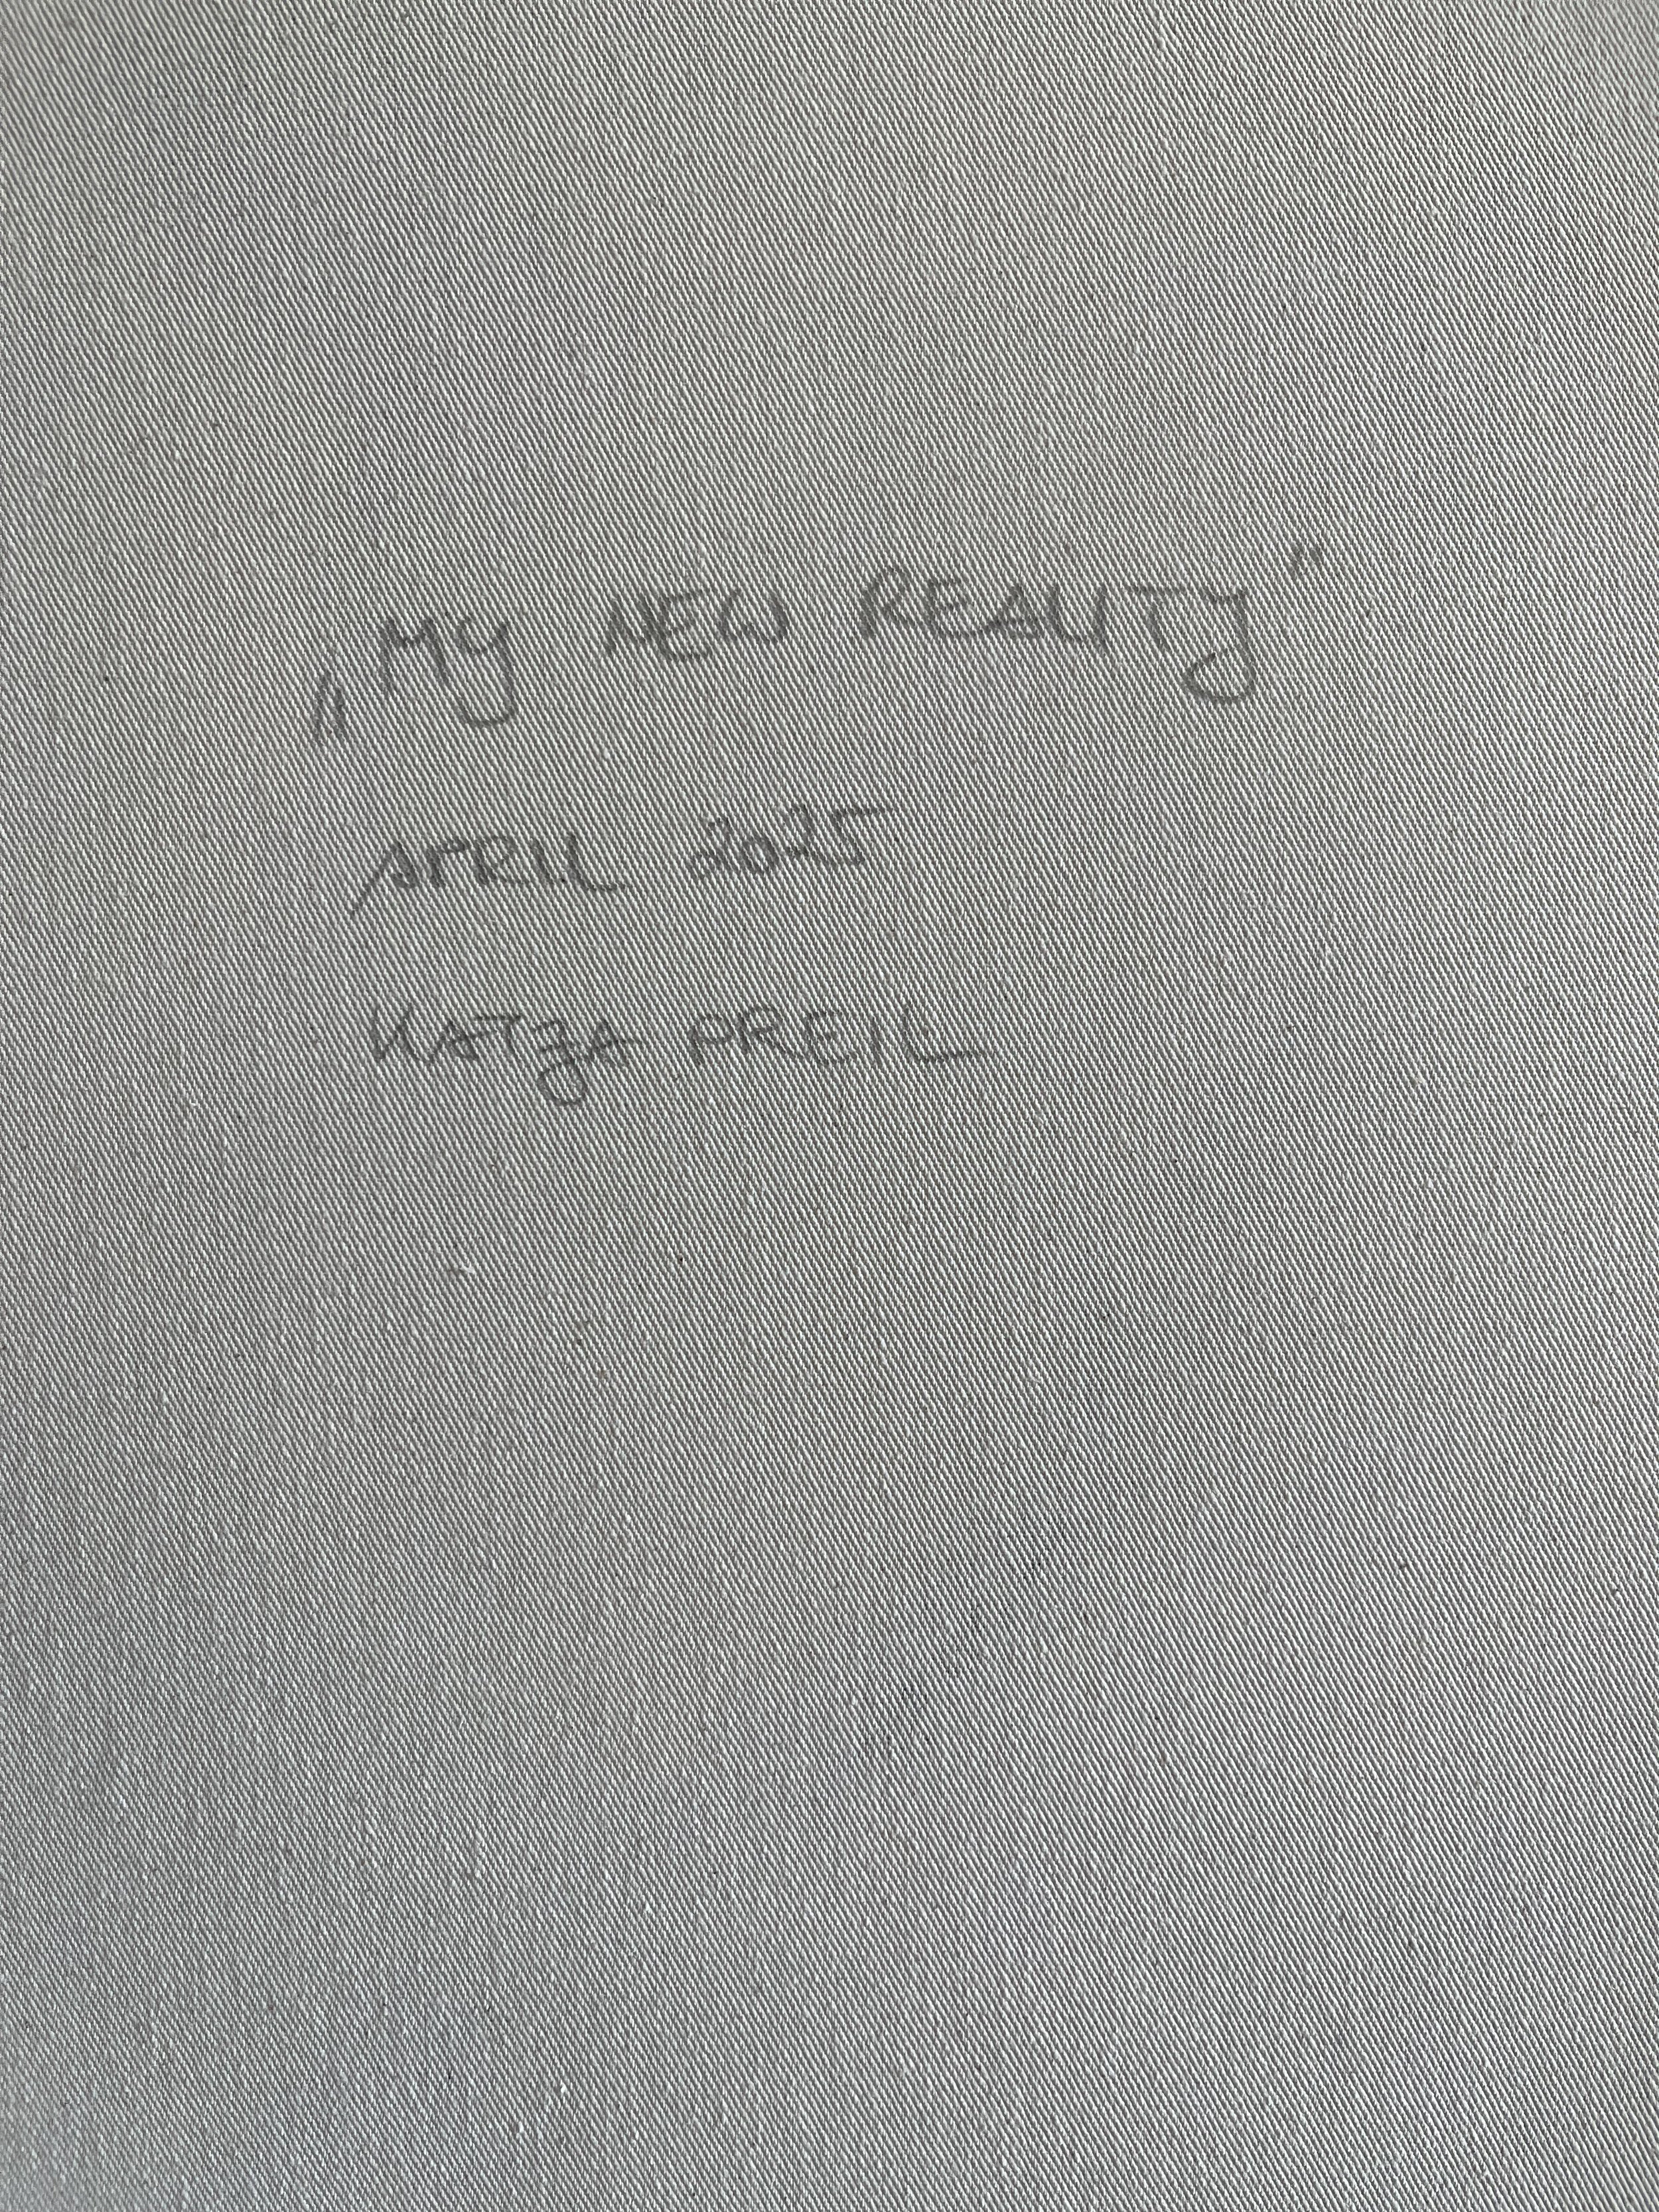 „MY NEW REALITY"
APRIL 2025
KATJA PREIL